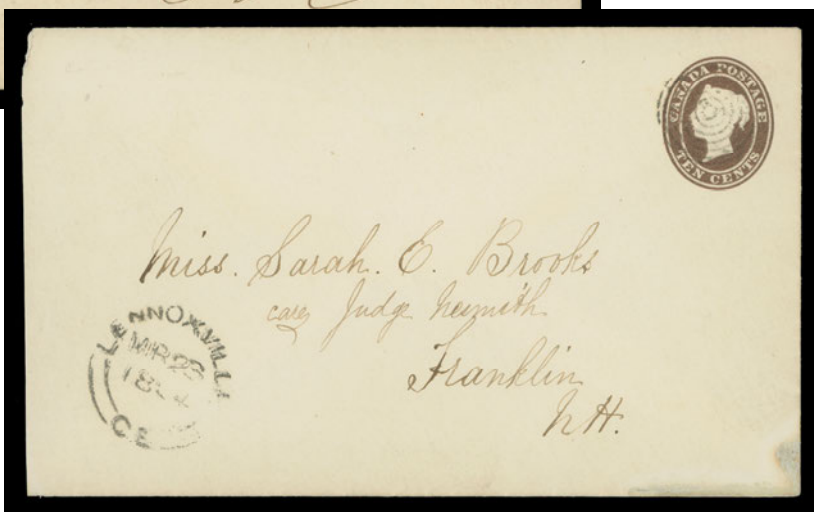 CANADA POSTAGE
TEN CENTS
Miss. Sarah. E. Brooks
care Judge Nesmith
Franklin
N.H.
LENNOXVILLE
MR 23
C.E.